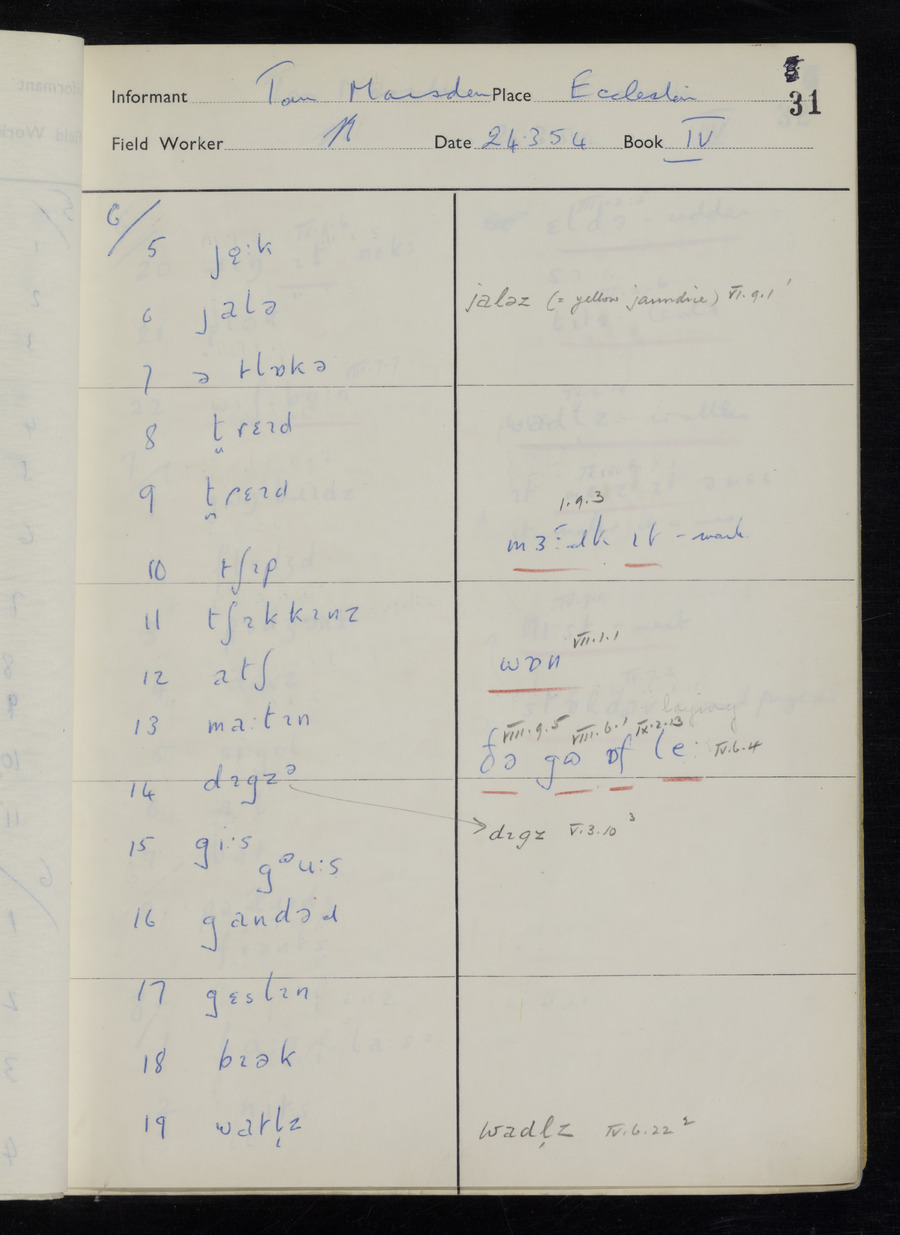 31
Informant Tom Marsden Place Eccleston
Field Worker Date 24.3.54 Book IV
6/
5 jɷ̜:k
6 jalə
jaləz (= yellow jaundice) VI.9.1
7 ə tlɒkə
8 t̪rɛɪd
9 t̪rɛɪd
1.9.3
mɜ:ɹk ɪt - mark
10 tʃɪp
11 tʃɪkkɪnz
VII.1.1
wɒn
12 atʃ
13 ma:tɪn
laying
VIII.9.5 VIII.6.1 IX.2.13
ðə gɷ ɒf le: IV.6.4
14 dɪgzᵊ
dɪgz V.3.10 ³
15 gi:s
gᵊu:s
16 gandəɹ
17 gɛslɪn
18 bɪək
19 watl̩z
wadl̩z IV.6.22 ²